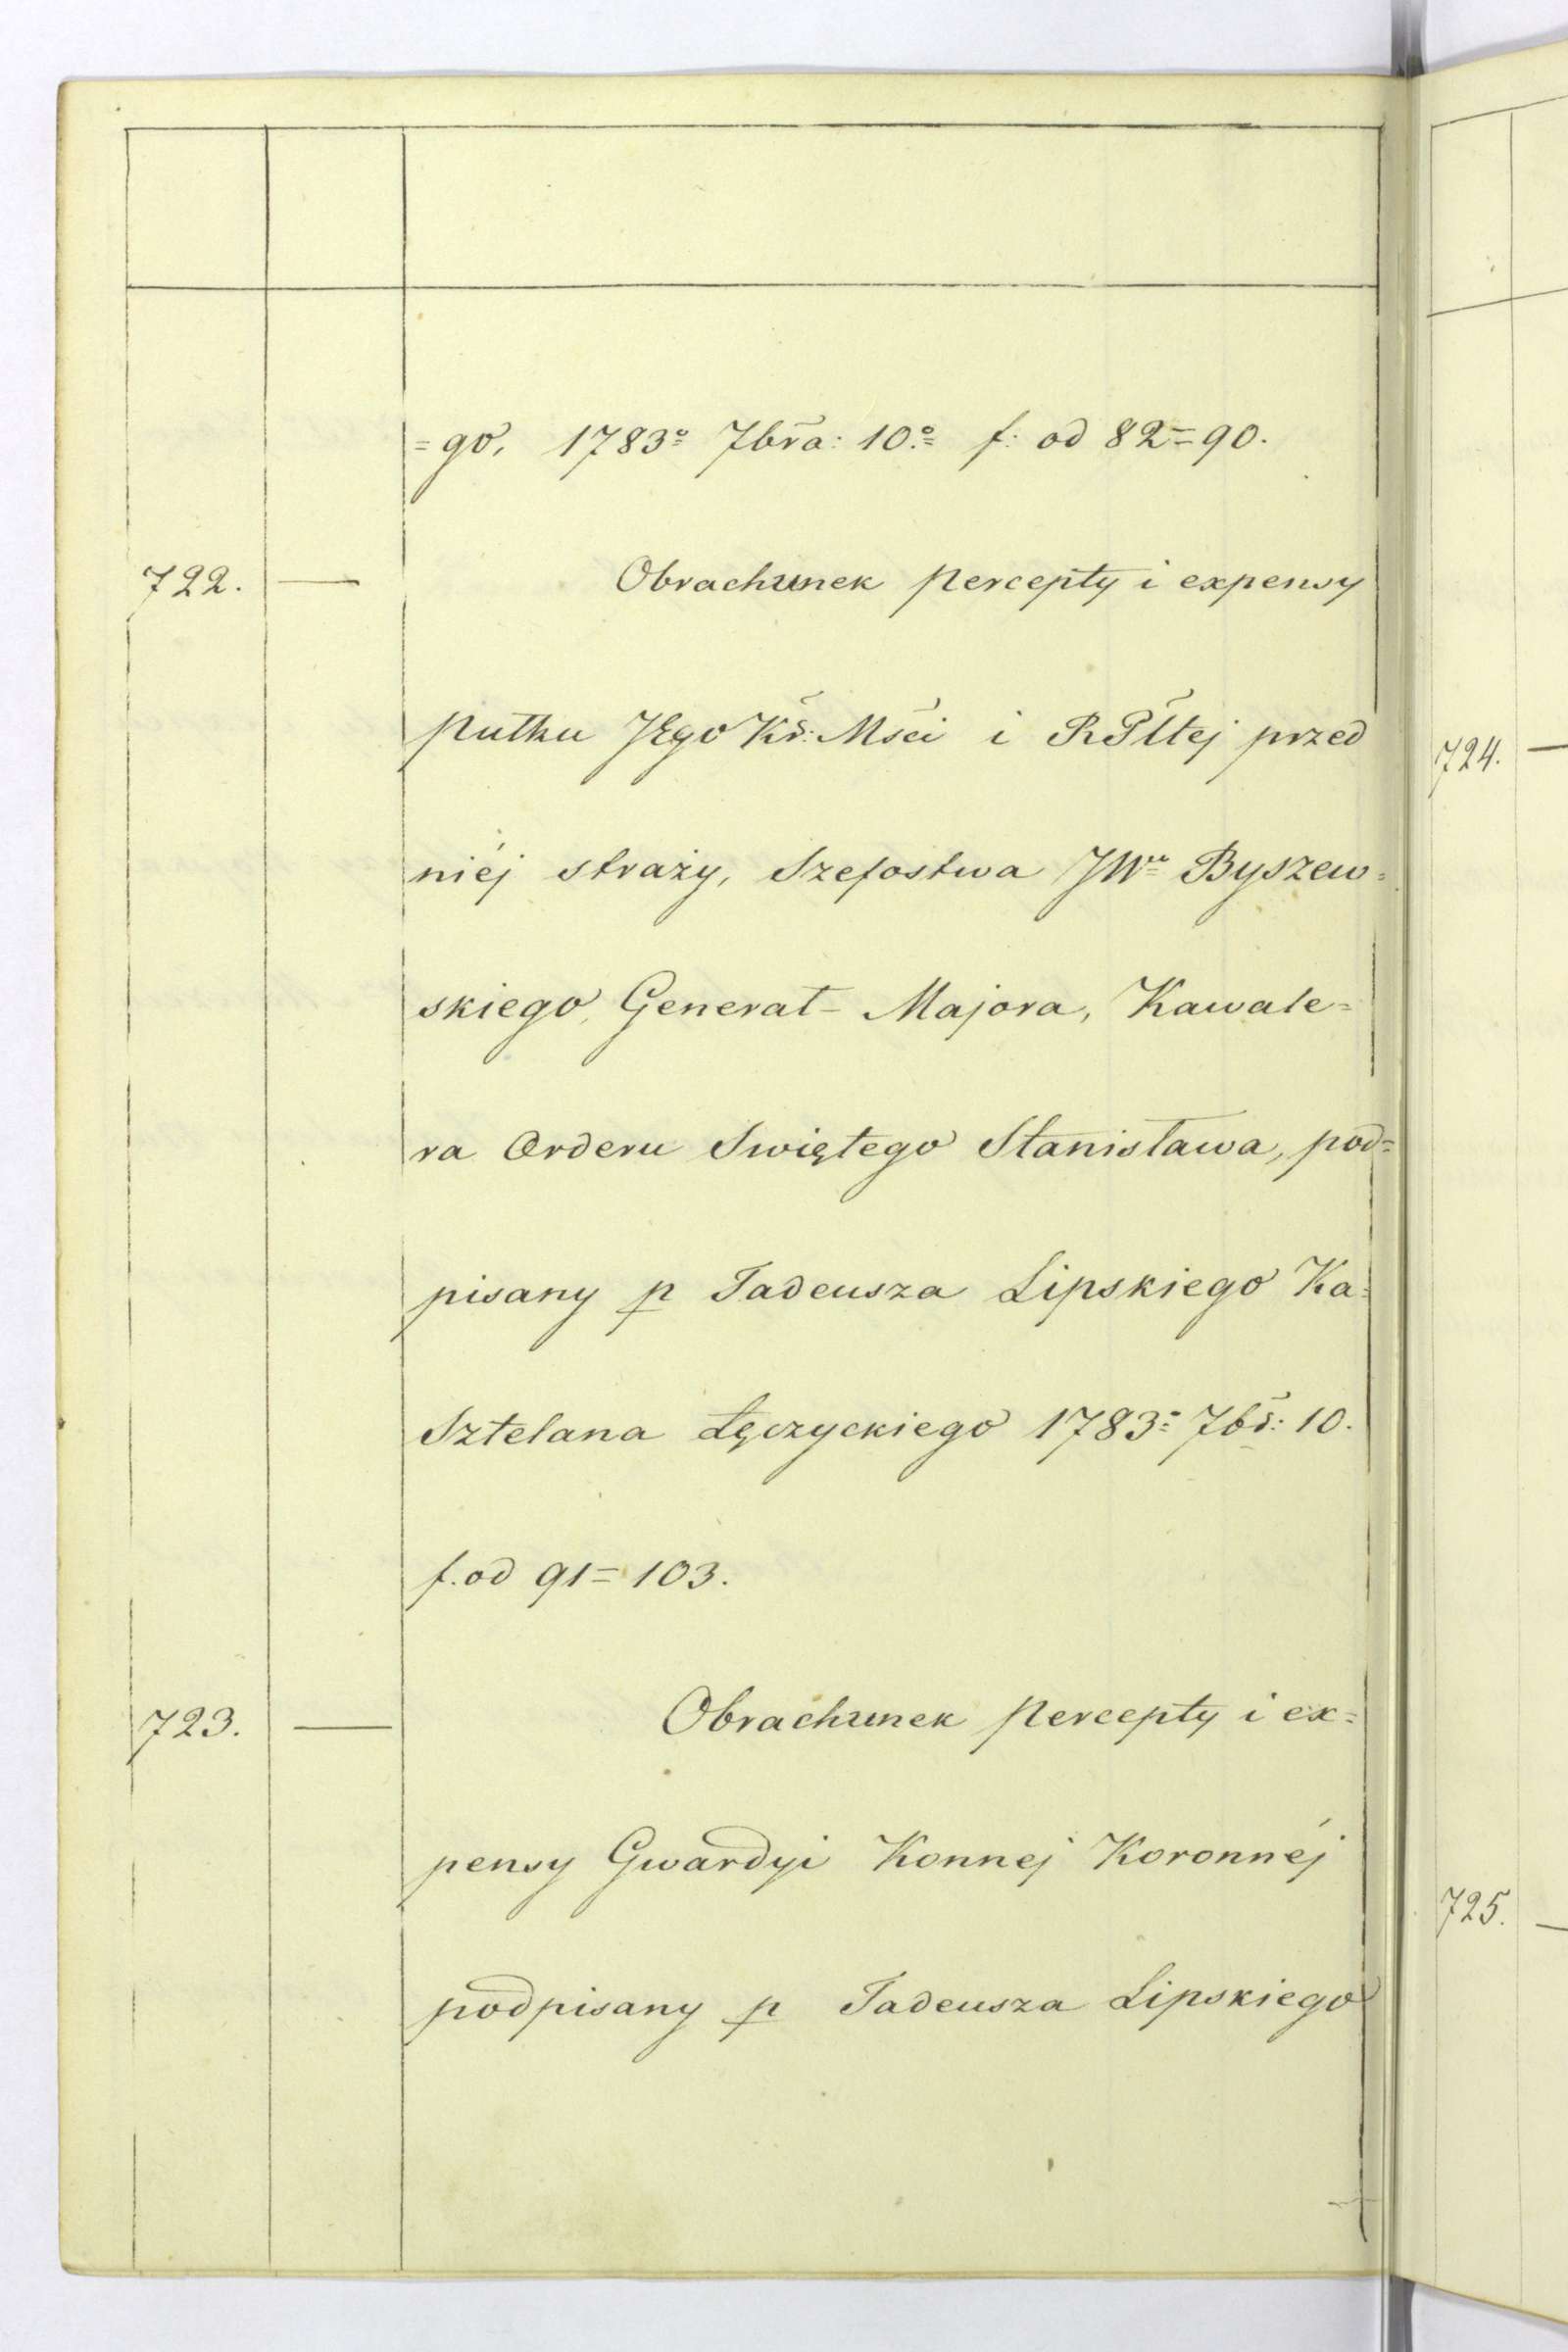 =go, 1783º 7bra: 10.º f: od 82=90.
722. — Obrachunek percepty i expensy
pułku JEgo Kr: Mści i RPltej przed
niéj straży, Szefostwa JWº Byszew=
skiego, Generał-Majora, Kawale=
ra Orderu Swiętego Stanisława, pod=
pisany p Tadeusza Lipskiego Ka=
sztelana Łęczyckiego 1783º 7br: 10.
f. od 91=103.
723. — Obrachunek percepty i ex=
pensy Gwardyi Konnej Koronnéj
podpisany p Tadeusza Lipskiego
724. —
725. —